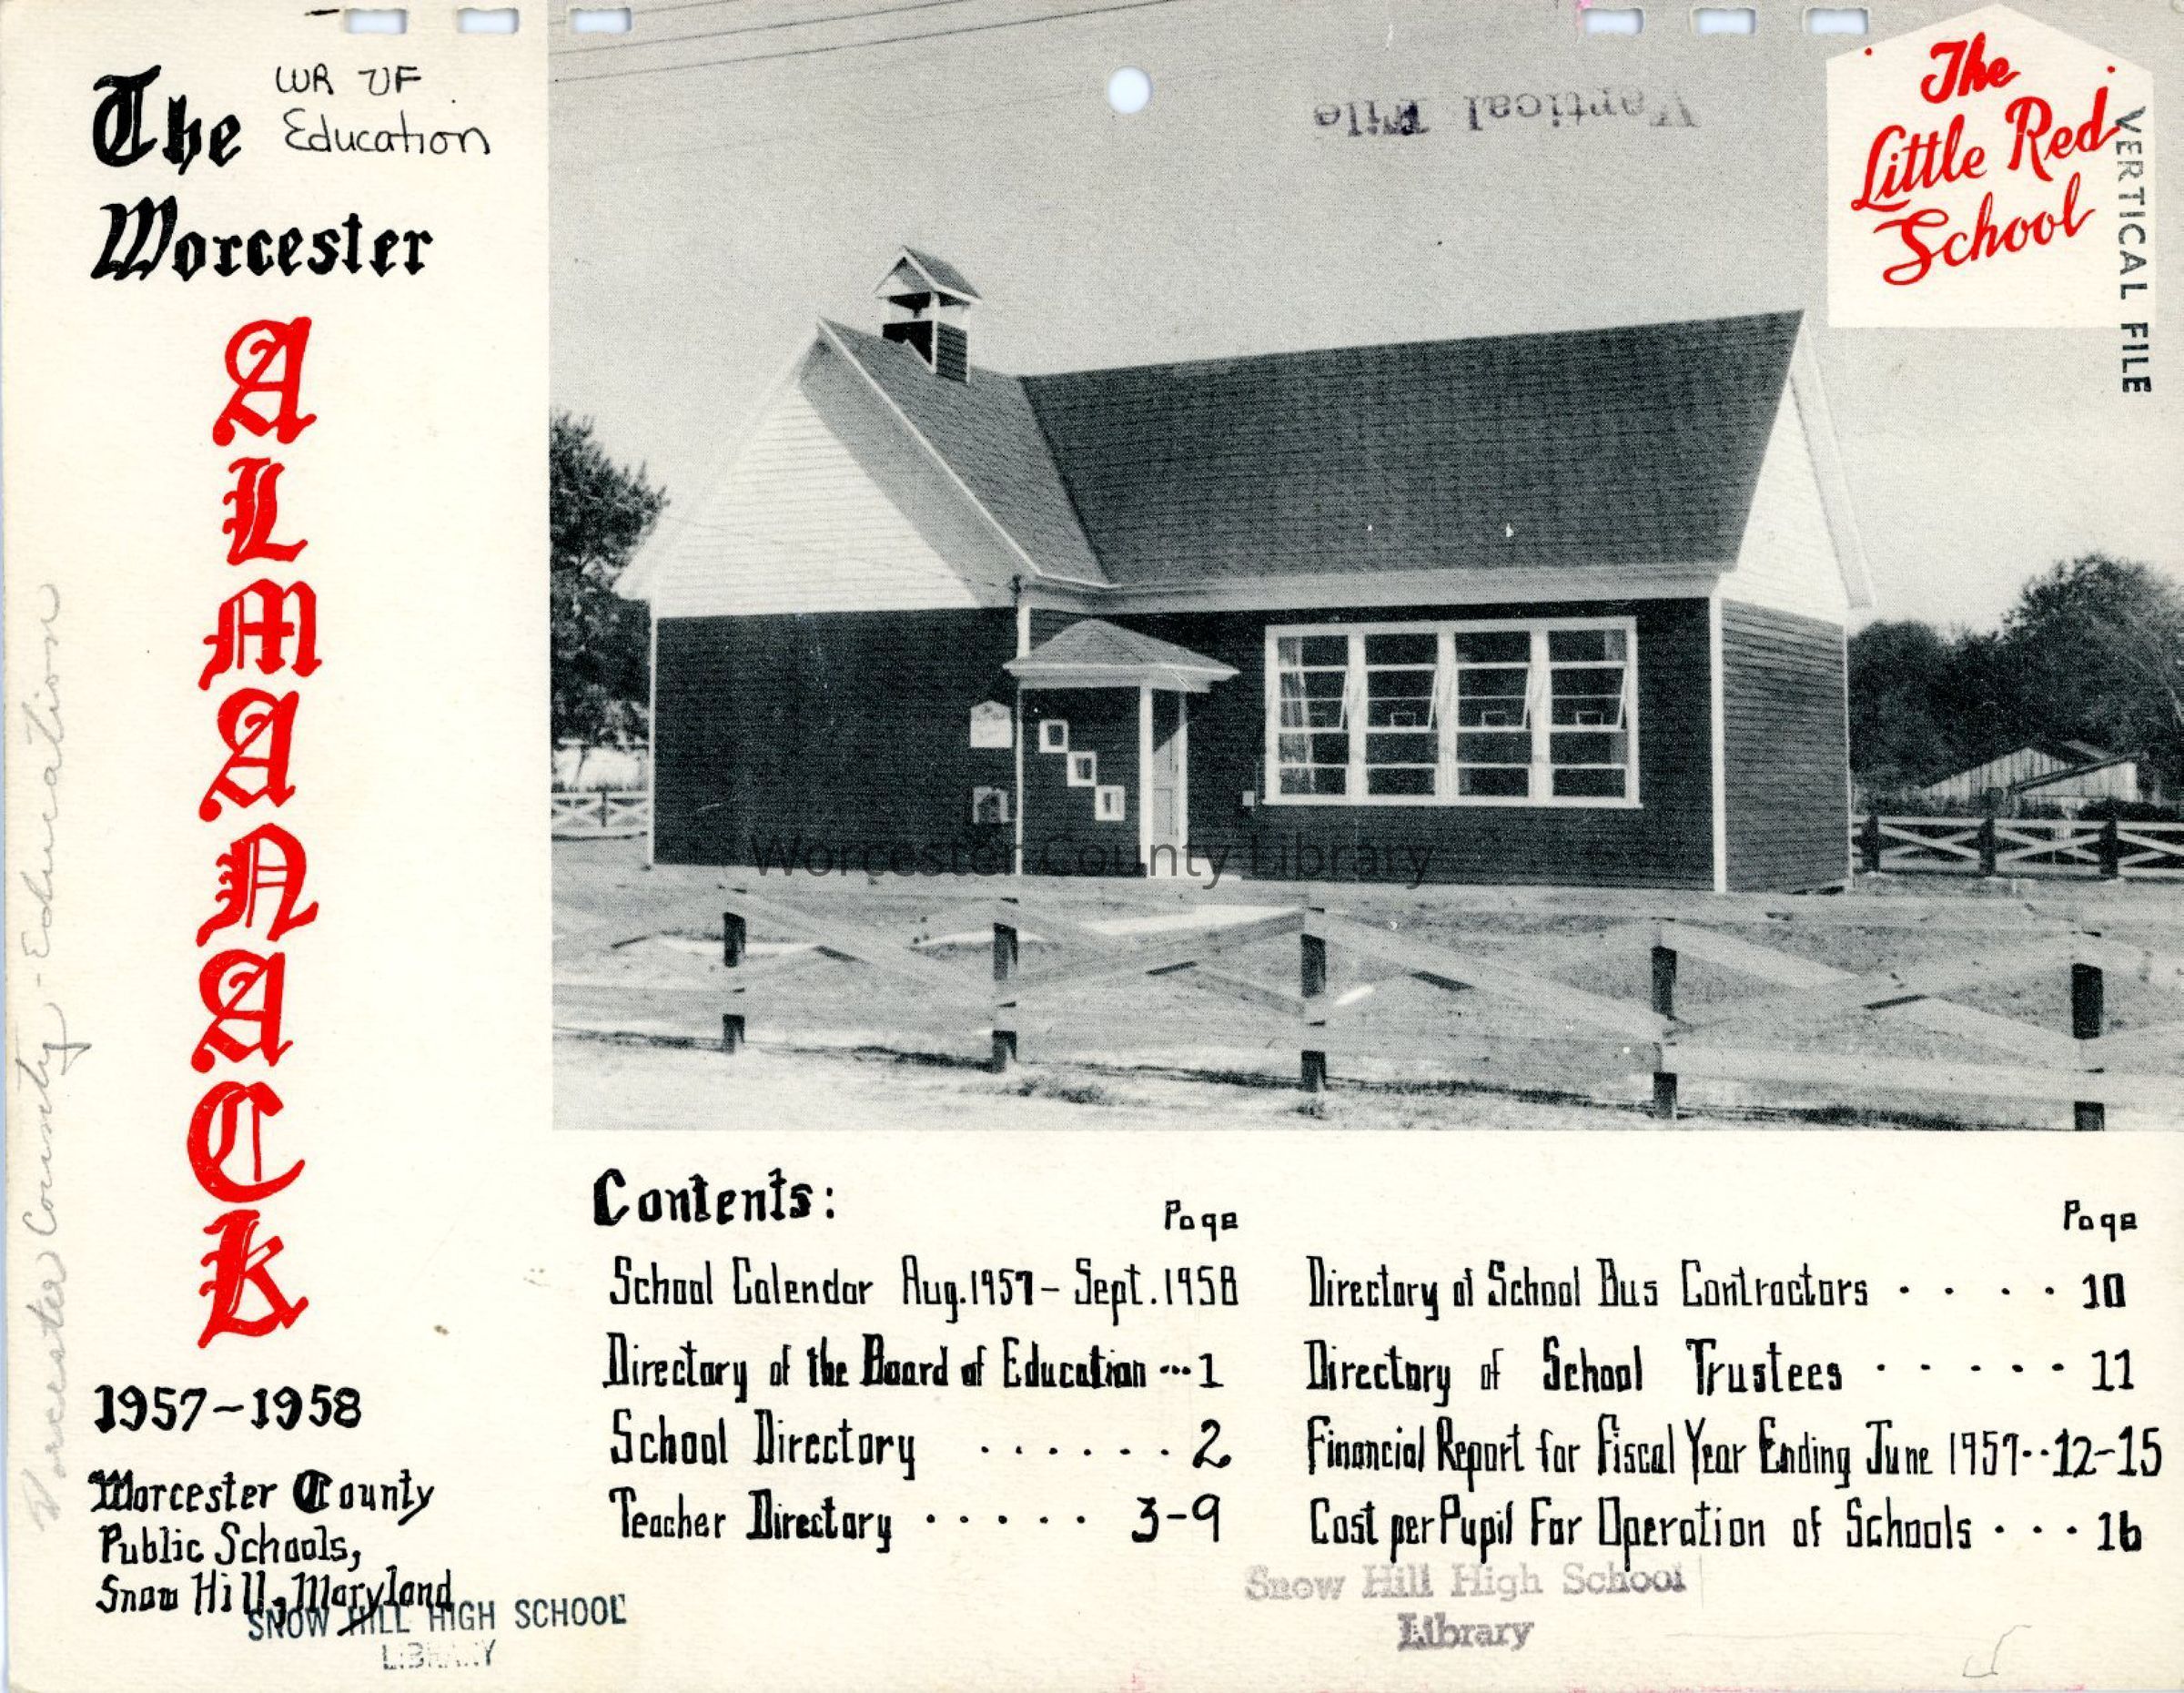 The
WR VF
Education
Worcester
ALMANACK
1957-1958
Worcester County
Public Schools,
Snow Hill, Maryland
SNOW HILL HIGH SCHOOL
LIBRARY
Worcester County - Education
Vertical File
The
Little Red
School
VERTICAL FILE
Worcester County Library
Contents:
Page
School Calendar Aug. 1957 - Sept. 1958
Directory of the Board of Education ... 1
School Directory ...... 2
Teacher Directory ..... 3-9
Page
Directory of School Bus Contractors .... 10
Directory of School Trustees ..... 11
Financial Report for Fiscal Year Ending June 1957 .. 12-15
Cost per Pupil For Operation of Schools ... 16
Snow Hill High School
Library